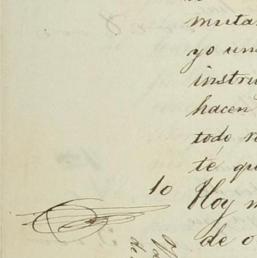 muta
yo un
instru
hacen
todo r
te qu
10 Hoy m
de o